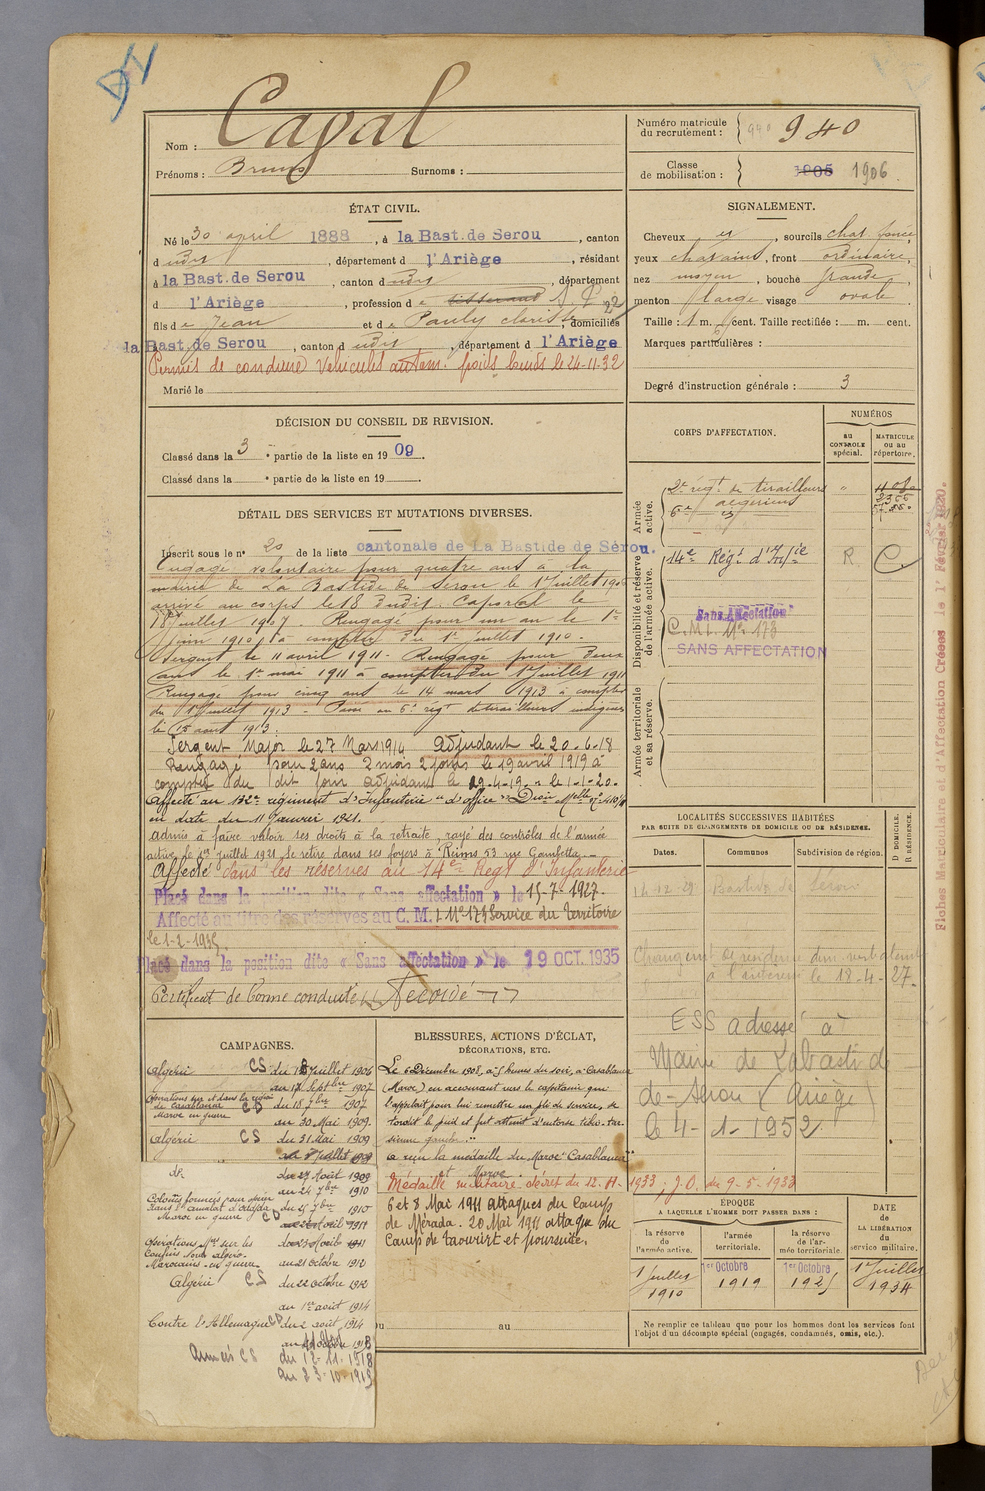 Nom : Cagal
Prénoms : Bruno Surnoms :
ÉTAT CIVIL.
Né le 30 april 1888, à la Bast. de Serou, canton
dudit, département d l'Ariège, résidant
à la Bast. de Serou, canton dudit, département
d l'Ariège, profession de tisserand
fils de Jean et de Pauly Clarisse, domiciliés
la Bast. de Serou, canton dudit, département d l'Ariège
Permis de conduire Véhicules autom. poids lourds le 24-11-32
Marié le
DÉCISION DU CONSEIL DE REVISION.
Classé dans la 3e partie de la liste en 1909.
Classé dans la e partie de la liste en 19
DÉTAIL DES SERVICES ET MUTATIONS DIVERSES.
Inscrit sous le no 20 de la liste cantonale de La Bastide de Sérou.
Engagé volontaire pour quatre ans à la
mairie de La Bastide de Serou le 1er Juillet 1906
arrivé au corps le 18 dudit. Caporal le
18 juillet 1907 Rengagé pour un an le 1er
juin 1910, à compter du 1er juillet 1910.
Sergent le 11 avril 1911. Rengagé pour deux
ans le 1er mai 1911 à compter du 1er juillet 1911
Rengagé pour cinq ans le 14 mars 1913 à compter
du 1er Juillet 1913 - Passé au 6e régt de tirailleurs indigènes
le 15 août 1913.
Sergent Major le 27 Mars 1914 adjudant le 20-6-18
Rengagé pour 2 ans 2 mois 2 jours le 19 avril 1919 à
compter du dit jour adjudant le 19-4-19 le 1-1-20.
Affecté au 132e régiment d'Infanterie "d'office"
en date du 11 Janvier 1921.
admis à faire valoir ses droits à la retraite, rayé des contrôles de l'armée
active le 1er juillet 1921, se retire dans ses foyers à Reims 53 rue Gambetta
Affecté dans les réserves au 14e Régt d'Infanterie
Placé dans la position dite « Sans affectation » le 15-7-1927.
Affecté au titre des réserves au C. M. I. No 173 Service du Territoire
le 1-2-1935.
Placé dans la position dite « Sans affectation » le 19 OCT. 1935
Certificat de bonne conduite "Accordé"
CAMPAGNES.
Algérie CS du 18 Juillet 1906
au 17 Septbre 1907
Opérations sur et dans la région
de Casablanca CD du 18 7bre 1907
Maroc en guerre
au 30 Mai 1909.
Algérie CS du 31 Mai 1909
au Juillet 1909
du 27 Août 1909
au 24 7bre 1910
dans l'amalat d'Oudjda
Maroc en guerre CD du 25 7bre 1910
au Avril 1911
Opérations Mres sur les
Confins
Marocains en guerre au 21 octobre 1912
Algérie CS du 22 octobre 1912
au 1er août 1914
Contre l'Allemagne CD du 2 août 1914
au octobre 1918
Armées CS du 12-11-1918
au 23-10-1919
BLESSURES, ACTIONS D'ÉCLAT,
DÉCORATIONS, ETC.
Le 6 Décembre 1908, à 5 heures du soir, à Casablanca
(Maroc) en accourant vers le capitaine qui
l'appelait pour lui remettre un pli de service, se
tordit le pied et fut atteint d'entorse tibio-tar-
sienne gauche."
a reçu la médaille du Maroc "Casablanca"
et Maroc.
Médaille militaire. décret du 12-4-1933; J.O. du 9-5-1933
6 et 8 Mai 1911 attaques du Camp
de Mérada. 20 Mai 1911 attaque du
Camp de Taourirt et poursuite.
au
Numéro matricule
du recrutement : 940 940
Classe
de mobilisation : 1905 1906
SIGNALEMENT.
Cheveux et, sourcils chat. foncé,
yeux chatains, front ordinaire,
nez moyen, bouche grande,
menton large visage ovale.
Taille : 1 m. cent. Taille rectifiée : m. cent.
Marques particulières :
Degré d'instruction générale : 3
CORPS D'AFFECTATION.
NUMÉROS
au
CONTROLE
spécial.
MATRICULE
ou au
répertoire.
Armée
active.
2e régt de tirailleurs " 
algériens
6e
Disponibilité et réserve
de l'armée active.
14e Régt d'Inf/ie R
Sans Affectation
C.M.I. No 173
SANS AFFECTATION
Armée territoriale
et sa réserve.
LOCALITÉS SUCCESSIVES HABITÉES
PAR SUITE DE CHANGEMENTS DE DOMICILE OU DE RÉSIDENCE.
Dates.
Communes
Subdivision de région.
D DOMICILE.
R RÉSIDENCE.
Bastide de Sérou
Changemt de résidence
le 18-4-27.
ESS adressé à
Mairie de Labastide
de-Serou (Ariège)
le 4-1-1952.
ÉPOQUE
A LAQUELLE L'HOMME DOIT PASSER DANS :
DATE
de
LA LIBÉRATION
du
service militaire.
la réserve
de
l'armée active.
l'armée
territoriale.
la réserve
de l'ar-
mée territoriale
1 juillet
1910
1er Octobre
1919
1er Octobre
1925
1er Juillet
1934
Ne remplir ce tableau que pour les hommes dont les services font
l'objet d'un décompte spécial (engagés, condamnés, omis, etc.).
Fiches Matriculaire et d'Affectation Créées le 1er Février 1920.